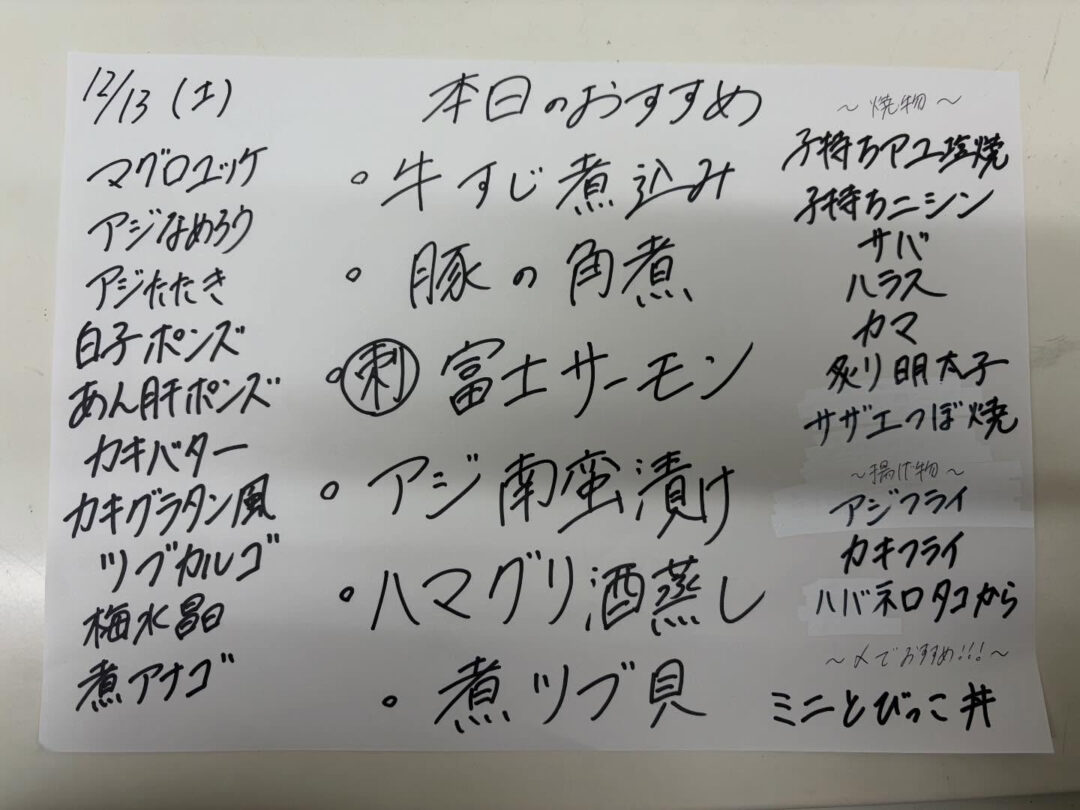 12/13(土)
マグロユッケ
アジなめろう
アジたたき
白子ポンズ
あん肝ポンズ
カキバター
カキグラタン風
ツブカルゴ
梅水晶
煮アナゴ
本日のおすすめ
・牛すじ煮込み
・豚の角煮
・刺 富士サーモン
・アジ南蛮漬け
・ハマグリ酒蒸し
・煮ツブ貝
〜焼物〜
子持ちアユ塩焼
子持ちニシン
サバ
ハラス
カマ
炙り明太子
サザエつぼ焼
〜揚げ物〜
アジフライ
カキフライ
ハバネロタコから
〜〆でおすすめ!!!〜
ミニとびっこ丼